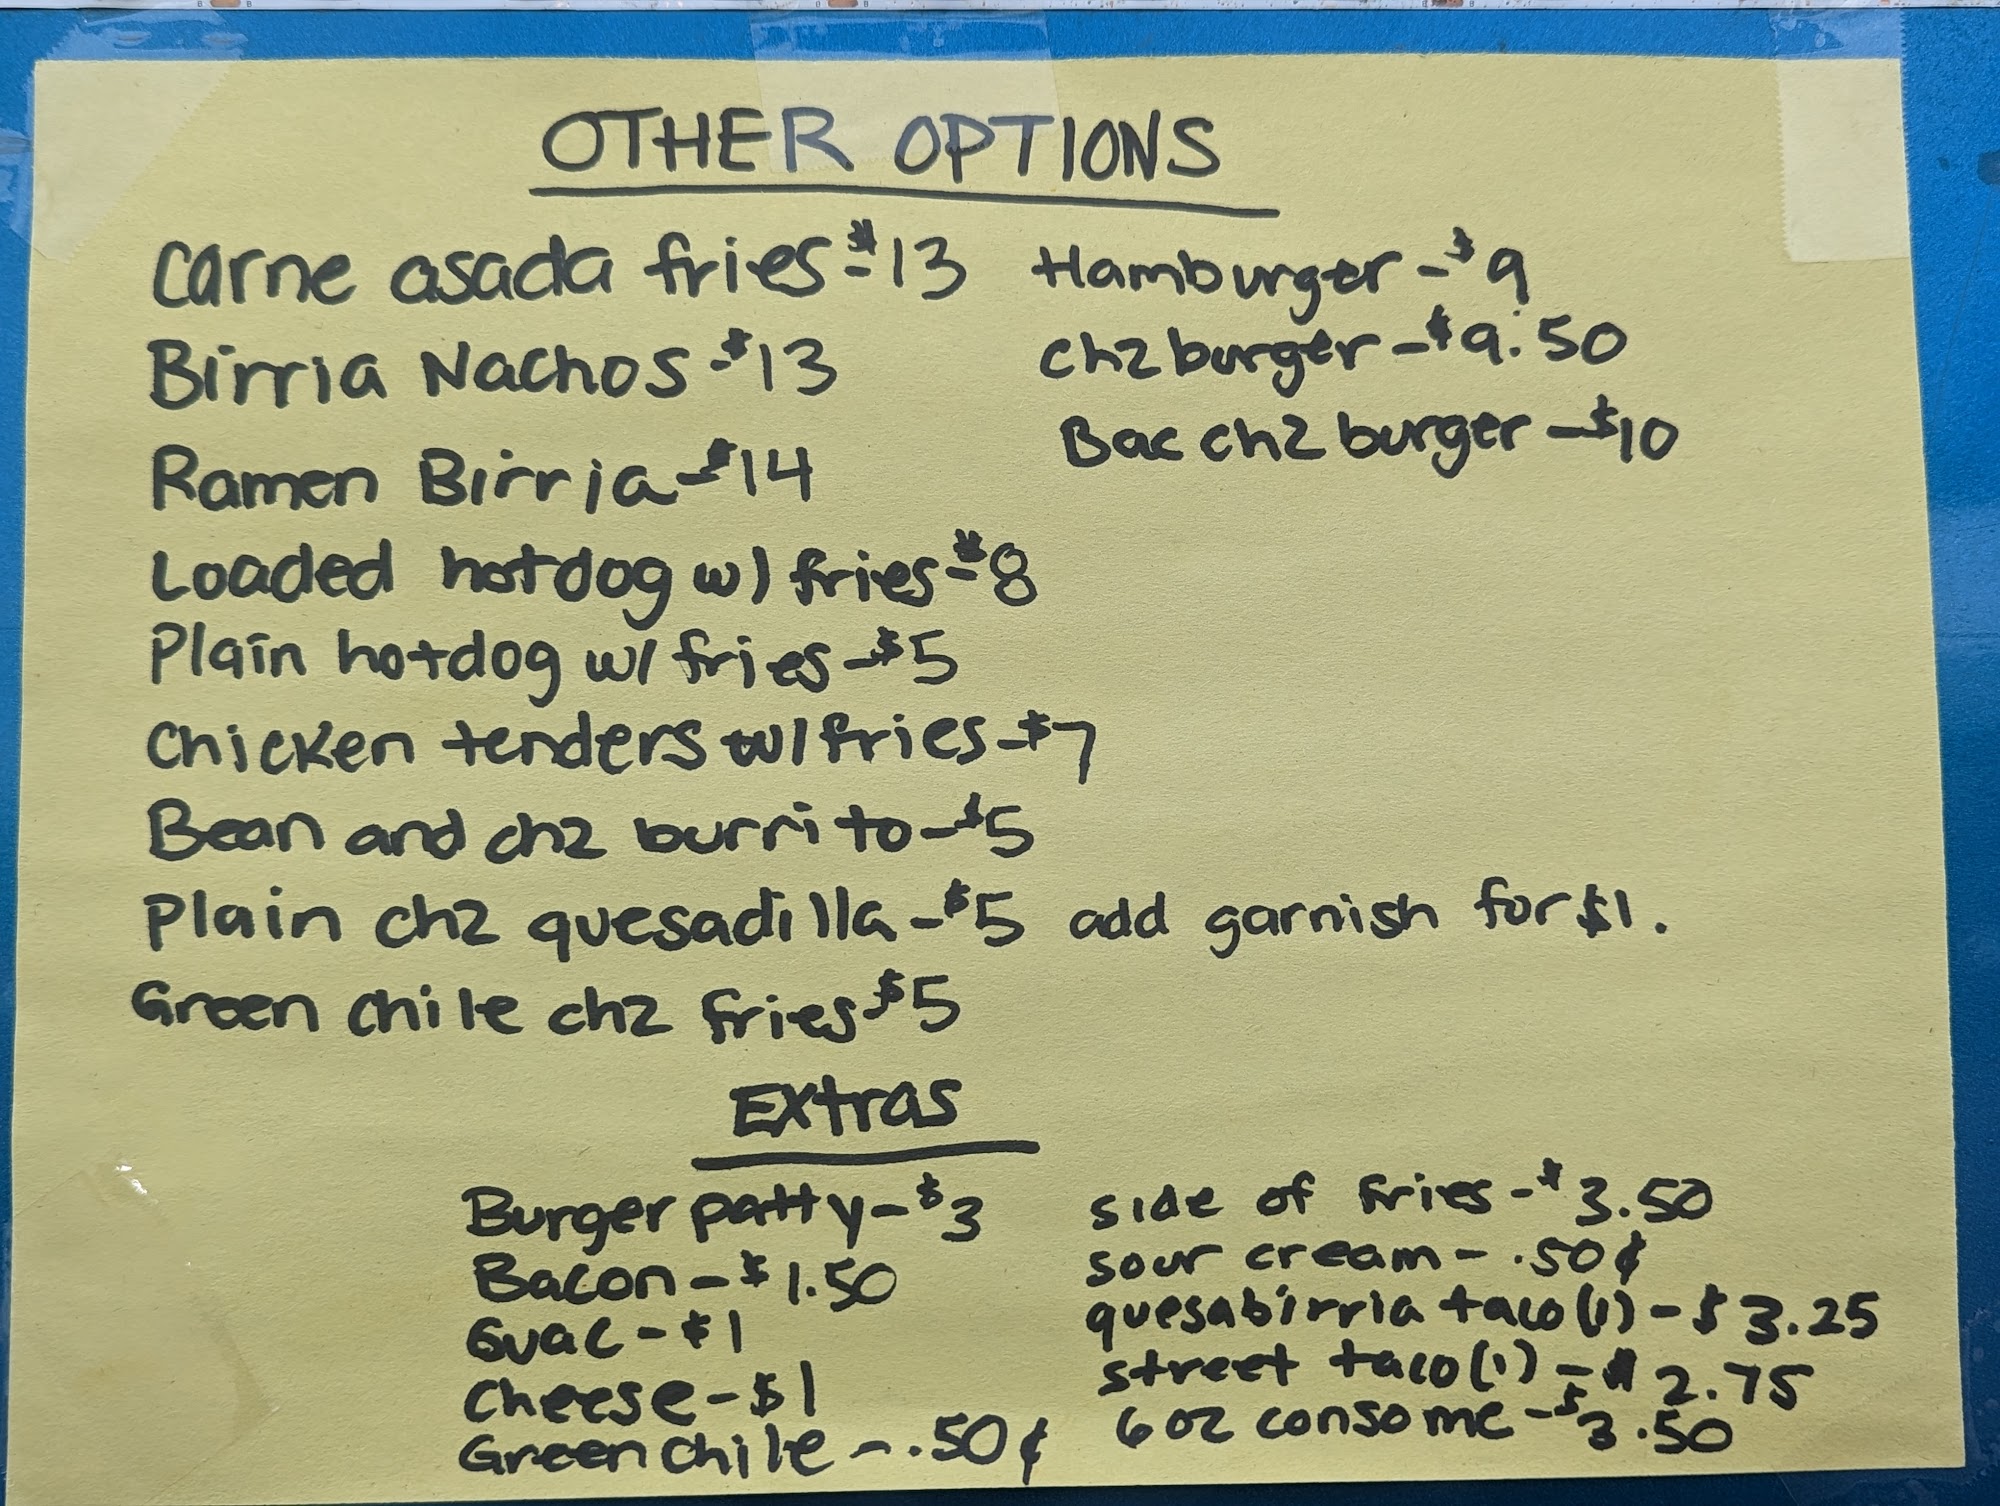 OTHER OPTIONS
Carne asada fries-$13
Birria Nachos-$13
Ramen Birria-$14
Loaded hotdog w/ fries-$8
Plain hotdog w/ fries-$5
Chicken tenders w/ fries-$7
Bean and chz burrito-$5
Plain chz quesadilla-$5 add garnish for $1.
Green chile chz fries $5
Hamburger-$9
chz burger-$9.50
Bac chz burger-$10
Extras
Burger patty-$3
Bacon-$1.50
Guac-$1
Cheese-$1
Green chile-.50¢
side of fries-$3.50
sour cream-.50¢
quesabirria taco(1)-$3.25
street taco(1)-$2.75
6oz consome-$3.50